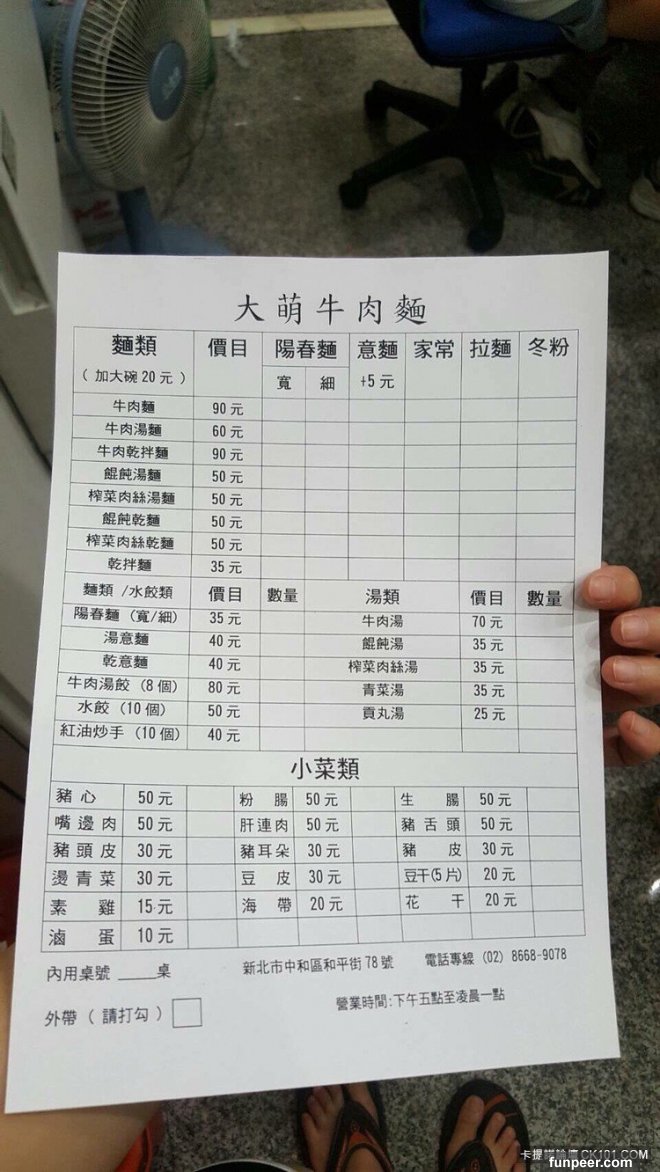 大萌牛肉麵
麵類 價目 陽春麵 意麵 家常 拉麵 冬粉
（加大碗20元） 寬 細 +5元
牛肉麵 90元
牛肉湯麵 60元
牛肉乾拌麵 90元
餛飩湯麵 50元
榨菜肉絲湯麵 50元
餛飩乾麵 50元
榨菜肉絲乾麵 50元
乾拌麵 35元
麵類/水餃類 價目 數量 湯類 價目 數量
陽春麵（寬/細） 35元 牛肉湯 70元
湯意麵 40元 餛飩湯 35元
乾意麵 40元 榨菜肉絲湯 35元
牛肉湯餃（8個） 80元 青菜湯 35元
水餃（10個） 50元 貢丸湯 25元
紅油炒手（10個） 40元
小菜類
豬心 50元 粉腸 50元 生腸 50元
嘴邊肉 50元 肝連肉 50元 豬舌頭 50元
豬頭皮 30元 豬耳朵 30元 豬皮 30元
燙青菜 30元 豆皮 30元 豆干(5片) 20元
素雞 15元 海帶 20元 花干 20元
滷蛋 10元
內用桌號 ____桌 新北市中和區和平街78號 電話專線（02）8668-9078
外帶（請打勾） 營業時間:下午五點至凌晨一點
卡提諾論壇 CK101.COM
funpeer.com